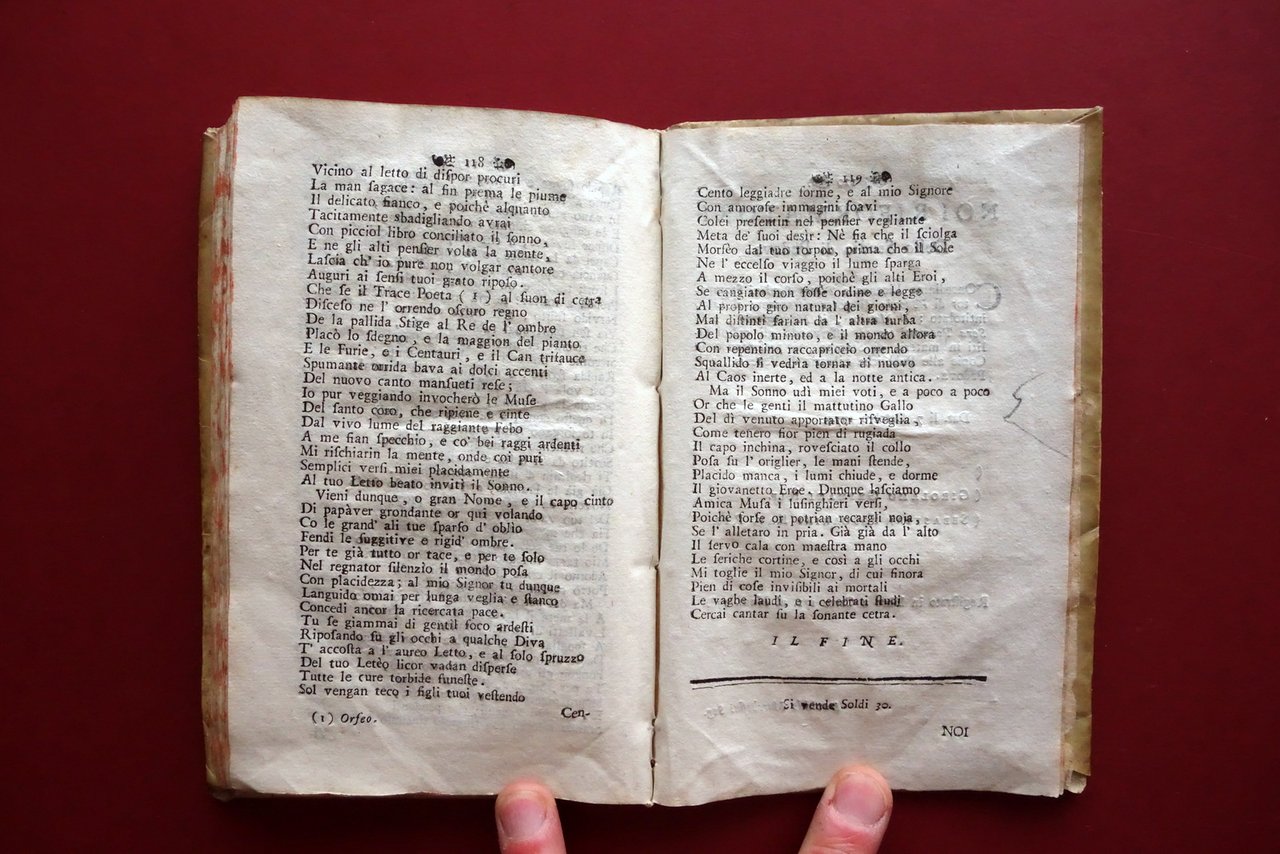 118
Vicino al letto di diſpor procuri
La man ſagace: al fin prema le piume
Il delicato fianco, e poichè alquanto
Tacitamente sbadigliando avrai
Con picciol libro conciliato il ſonno,
E ne gli alti penſier volta la mente,
Laſcia ch' io pure non volgar cantore
Auguri ai ſenſi tuoi grato ripoſo.
Che ſe il Trace Poeta (1) al ſuon di cetra
Diſceſo ne l' orrendo oſcuro regno
De la pallida Stige al Re de l' ombre
Placò lo ſdegno, e la maggion del pianto
E le Furie, e i Centauri, e il Can trifauce
Spumante orrida bava ai dolci accenti
Del nuovo canto manſueti reſe;
Io pur veggiando invocherò le Muſe
Del ſanto coro, che ripiene e cinte
Dal vivo lume del raggiante Febo
A me ſian ſpecchio, e co' bei raggi ardenti
Mi riſchiarin la mente, onde coi puri
Semplici verſi miei placidamente
Al tuo Letto beato inviti il Sonno.
Vieni dunque, o gran Nome, e il capo cinto
Di papàver grondante or qui volando
Co le grand' ali tue ſparſo d' oblìo
Fendi le fuggitive e rigid' ombre.
Per te già tutto or tace, e per te ſolo
Nel regnator ſilenzio il mondo poſa
Con placidezza; al mio Signor tu dunque
Languido omai per lunga veglia e ſtanco
Concedi ancor la ricercata pace.
Tu ſe giammai di gentil foco ardeſti
Ripoſando ſu gli occhi a qualche Diva
T' accoſta a l' aureo Letto, e al ſolo ſpruzzo
Del tuo Letèo licor vadan diſperſe
Tutte le cure torbide funeſte.
Sol vengan teco i figli tuoi veſtendo
(1) Orfeo.
Cen-
119
Cento leggiadre forme, e al mio Signore
Con amoroſe immagini ſoavi
Colei preſentin nel penſier vegliante
Meta de' ſuoi deſir: Nè fia che il ſciolga
Morfèo dal tuo torpor, prima che il Sole
Ne l' eccelſo viaggio il lume ſparga
A mezzo il corſo, poichè gli alti Eroi,
Se cangiato non foſſe ordine e legge
Al proprio giro natural dei giorni,
Mal diſtinti farian da l' altra turba
Del popolo minuto, e il mondo allora
Con repentino raccapriccio orrendo
Squallido ſi vedrìa tornar di nuovo
Al Caos inerte, ed a la notte antica.
Ma il Sonno udì miei voti, e a poco a poco
Or che le genti il mattutino Gallo
Del dì venuto apportator riſveglia,
Come tenero fior pien di rugiada
Il capo inchina, roveſciato il collo
Poſa ſu l' origlier, le mani ſtende,
Placido manca, i lumi chiude, e dorme
Il giovanetto Eroe. Dunque laſciamo
Amica Muſa i luſinghieri verſi,
Poichè forſe or potrian recargli noja,
Se l' alletaro in pria. Già già da l' alto
Il ſervo cala con maeſtra mano
Le ſeriche cortine, e così a gli occhi
Mi toglie il mio Signor, di cui finora
Pien di coſe inviſibili ai mortali
Le vaghe laudi, e i celebrati ſtudi
Cercai cantar ſu la ſonante cetra.
IL FINE.
Si vende Soldi 30.
NOI